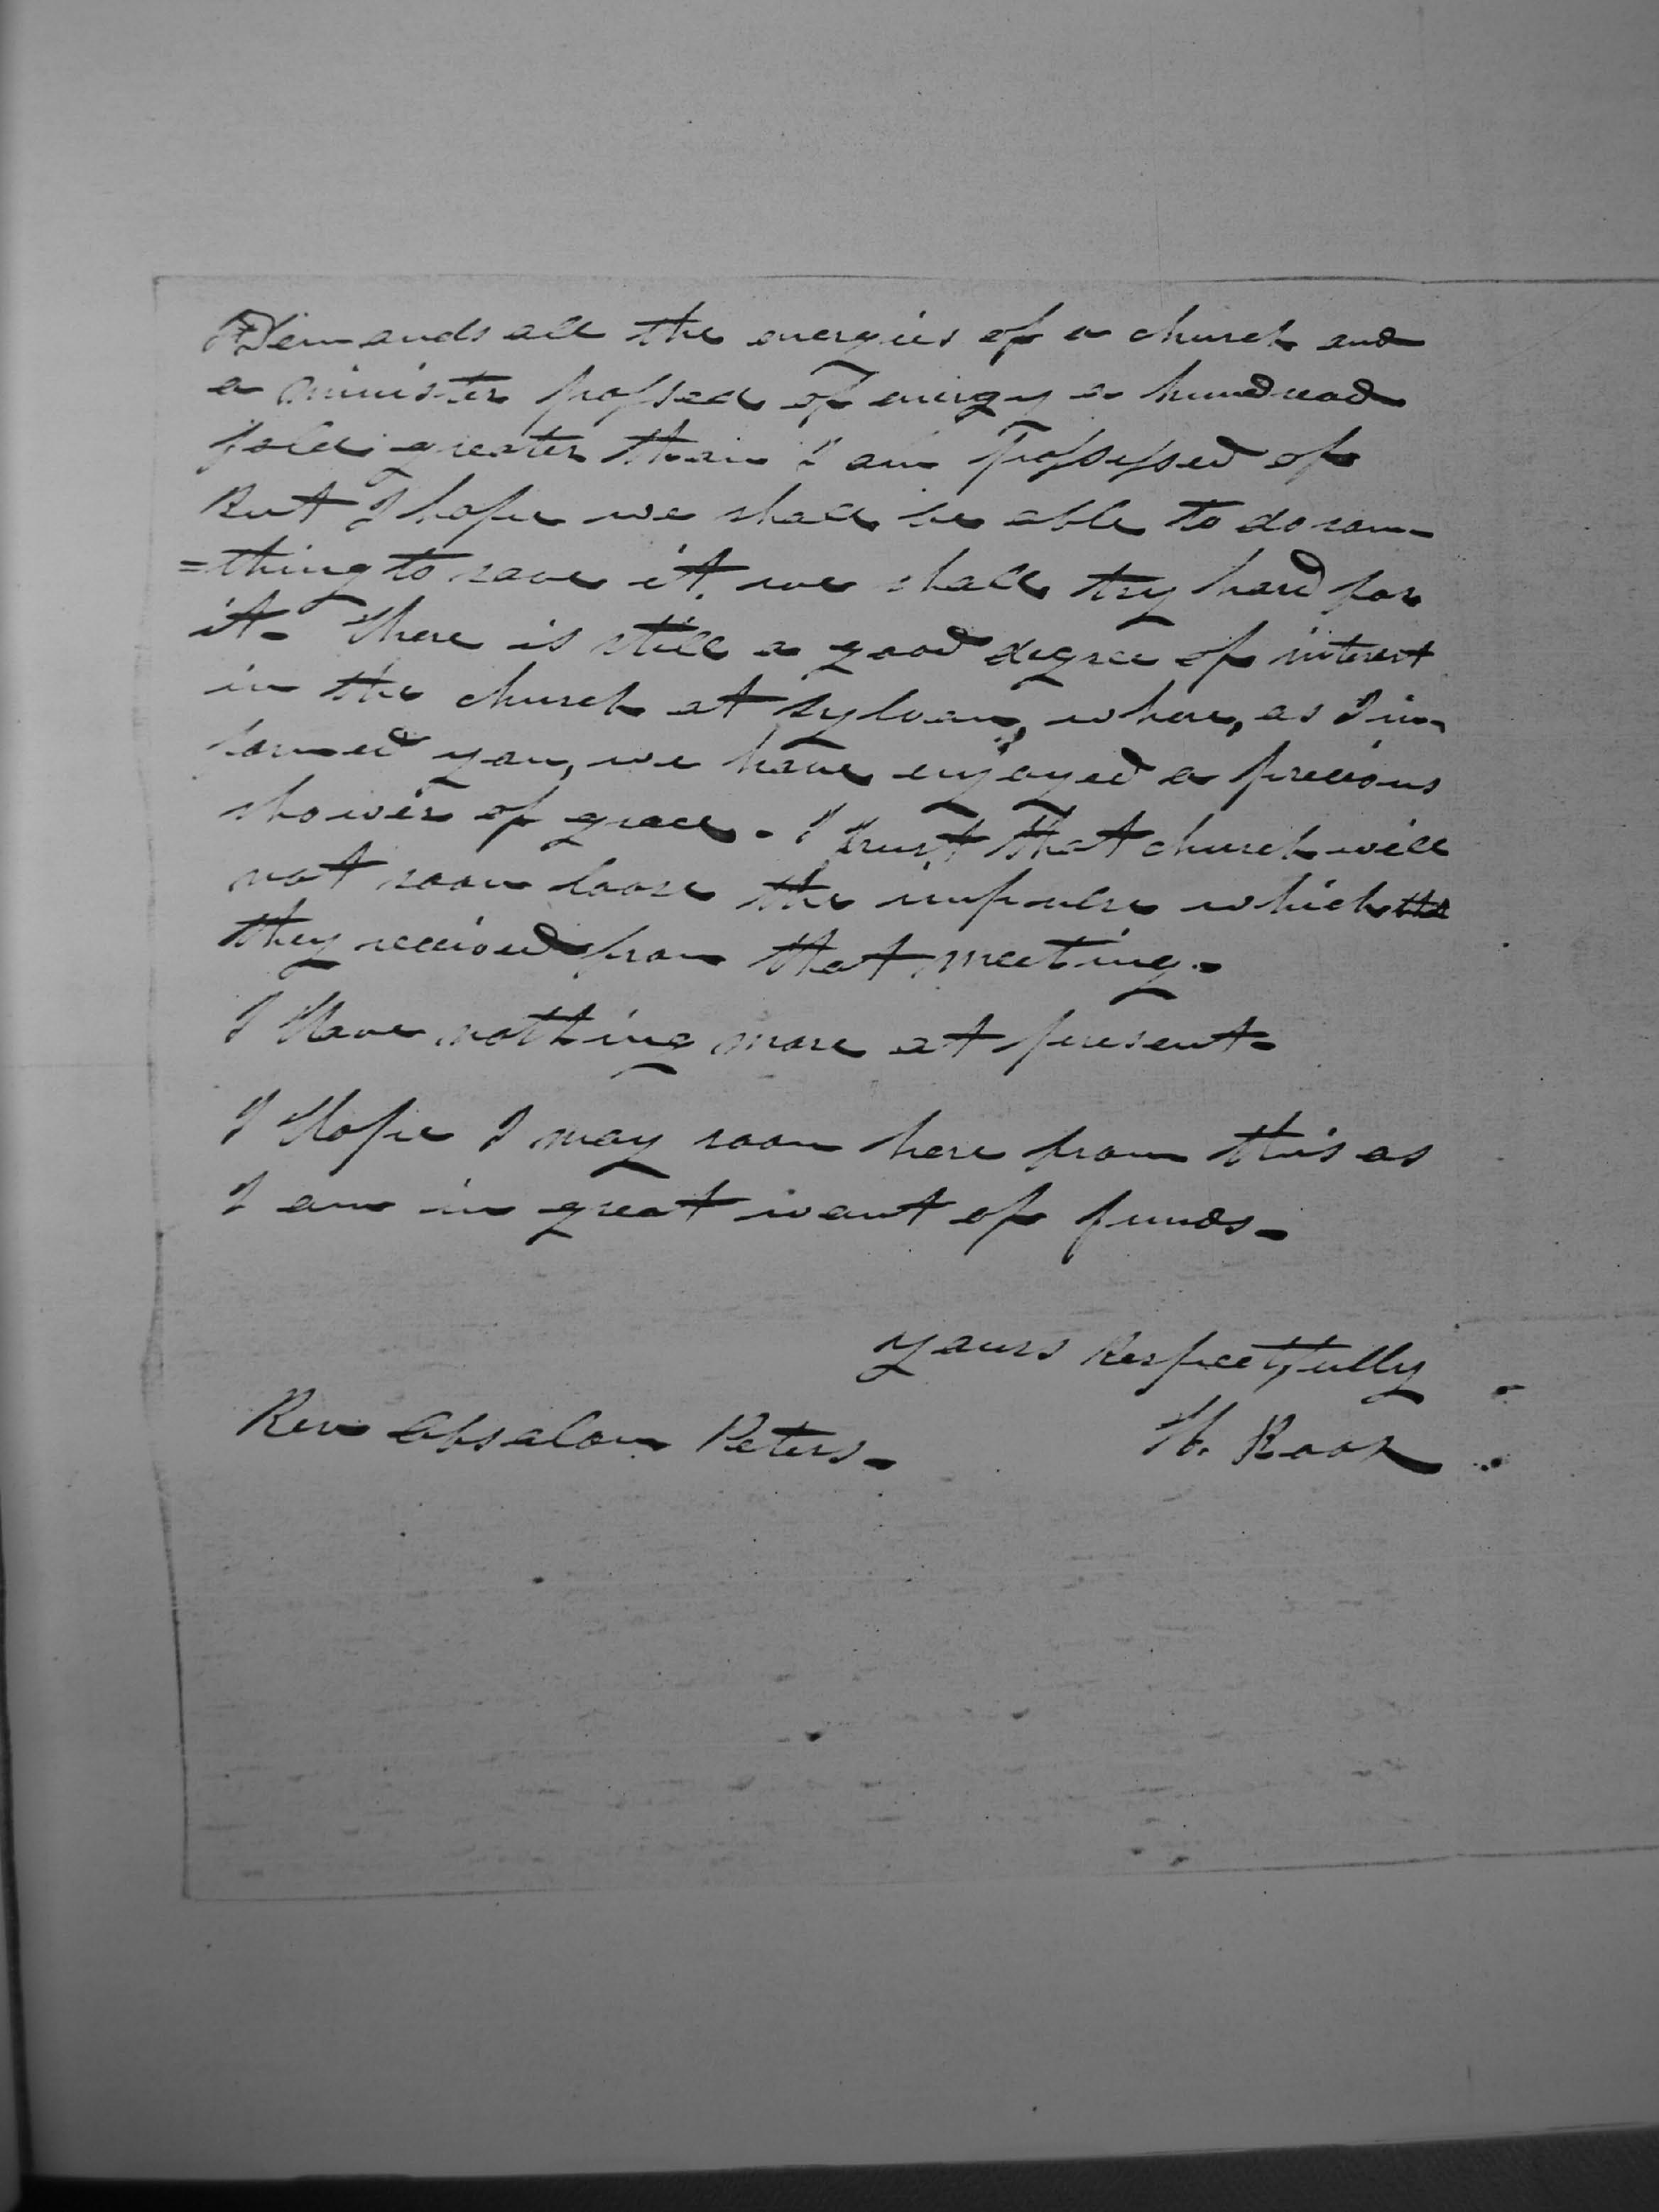 Demands all the energies of a church and
a minister possed of energy a hundread
fold greater than I am possessed of
But I hope we shall be able to do som-
=thing to save it. we shall try hard for
it- There is still a good degree of interest
in the church at Sylvan, where, as I in-
formed you, we have enjoyed a precious
shower of grace - I trust that church will
not soon loose the impulse which the
they received from that meeting-
I Have nothing more at present-
I Hope I may soon here from this as
I am in great want of funds-
yours Respectfully
Rev Absalom Peters- H. Root